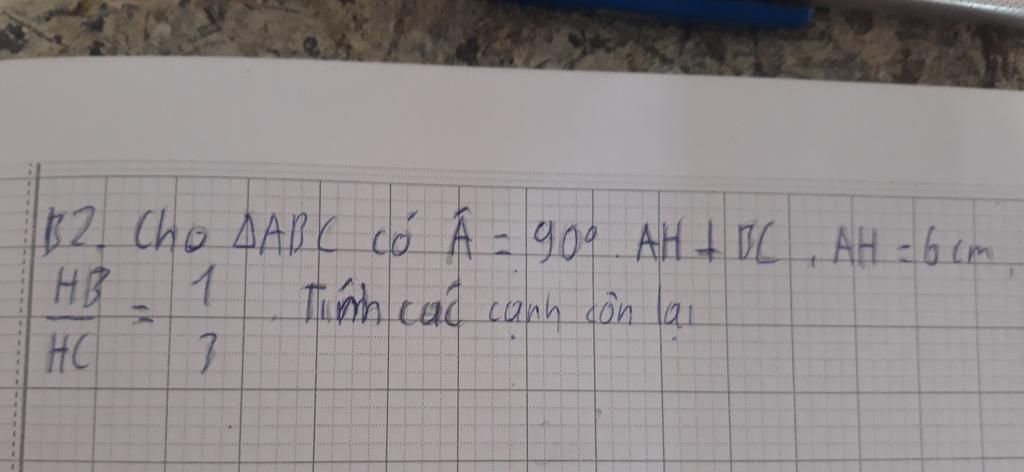 B2. Cho ΔABC có Â = 90° AH ⊥ BC, AH = 6 cm,
HB/HC = 1/3. Tính các cạnh còn lại